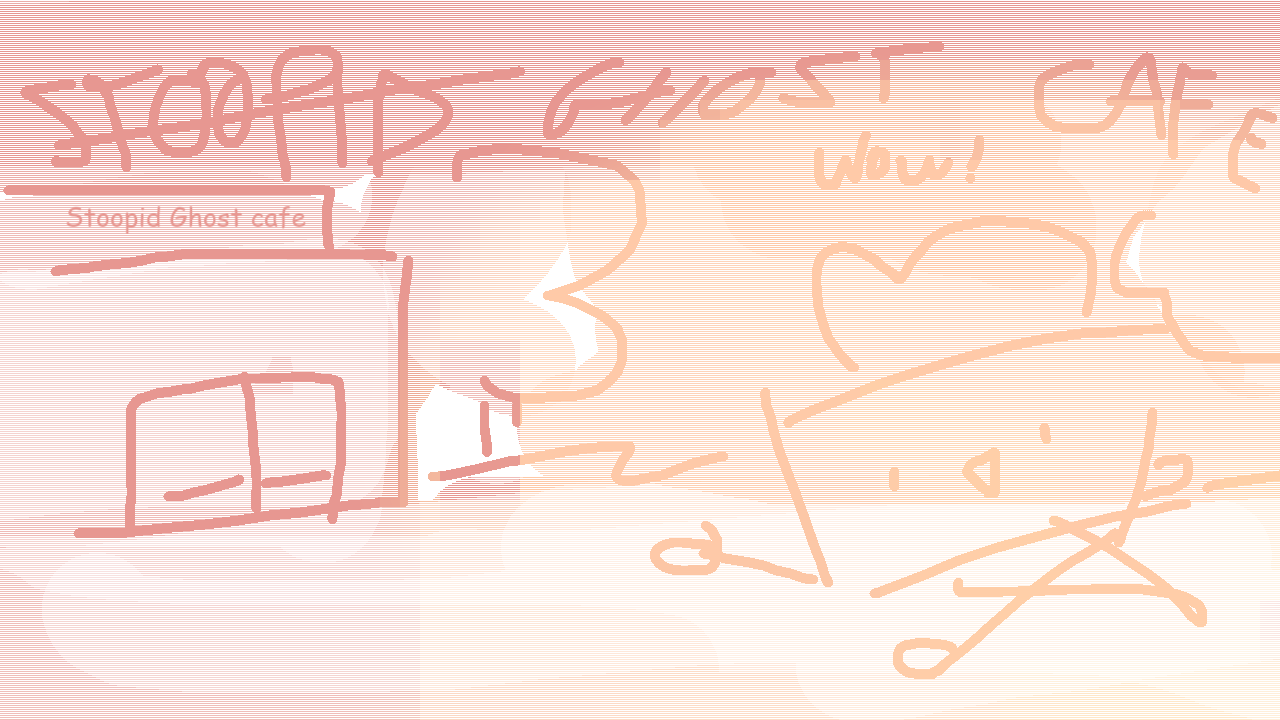 STOOPID GHOST CAFE
WOW!
Stoopid Ghost cafe